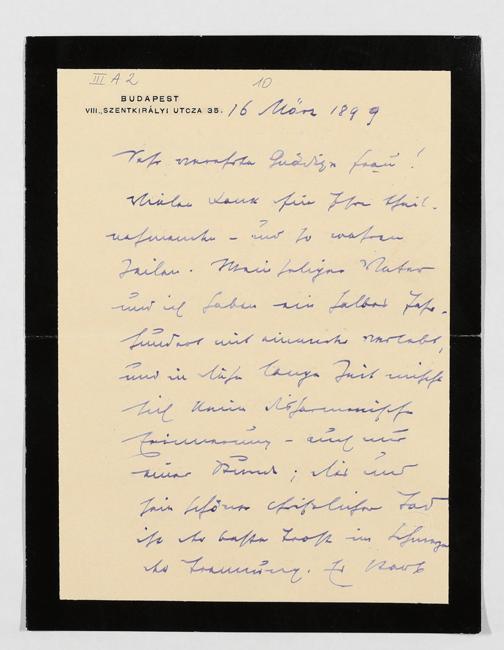 III A 2
10
BUDAPEST
VIII., SZENTKIRÁLYI UTCZA 35.
16 März 1899
Sehr verehrte Gnädige Frau!
Vielen Dank für Ihre theil-
nehmende – und so wahren
Zeilen. Mein seliger Vater
und ich haben ein halbes Jahr-
hundert mit einander verlebt,
und in diese lange Zeit mischt
sich keine disharmonische
Erinnerung – auch nur
einer Stunde; dies und
sein schöner christlicher Tod
ist der beste Trost im Schmerze
der Trennung. Er starb